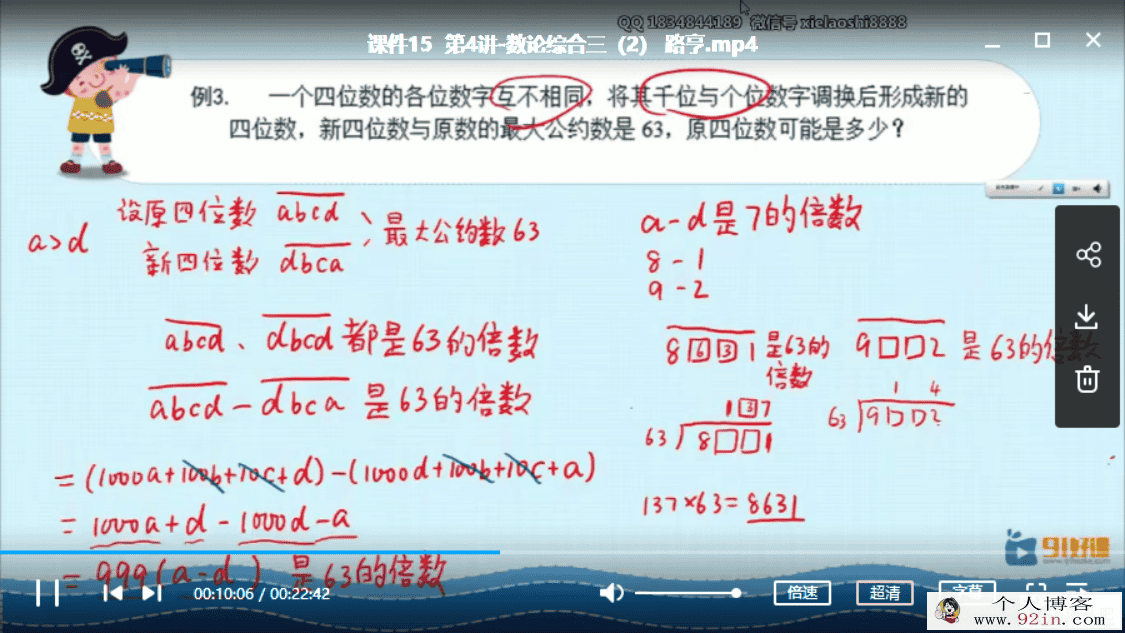 QQ 1834844189 微信号 xielaoshi8888
课件15 第4讲-数论综合三（2） 路亨.mp4
例3. 一个四位数的各位数字互不相同，将其千位与个位数字调换后形成新的
四位数，新四位数与原数的最大公约数是 63，原四位数可能是多少？
a>d
设原四位数 abcd
新四位数 dbca
最大公约数 63
abcd、dbcd 都是63的倍数
abcd - dbca 是63的倍数
=(1000a+100b+10c+d)-(1000d+100b+10c+a)
=1000a+d-1000d-a
=999(a-d) 是63的倍数
a-d是7的倍数
8-1
9-2
8 6 3 1 是63的
倍数
9□□2 是63的倍数
1 3 7
63 8□□1
137×63=8631
1 4
63 9□□2
91好课
00:10:06 / 00:22:42
倍速
超清
字幕
个人博客
www.92in.com